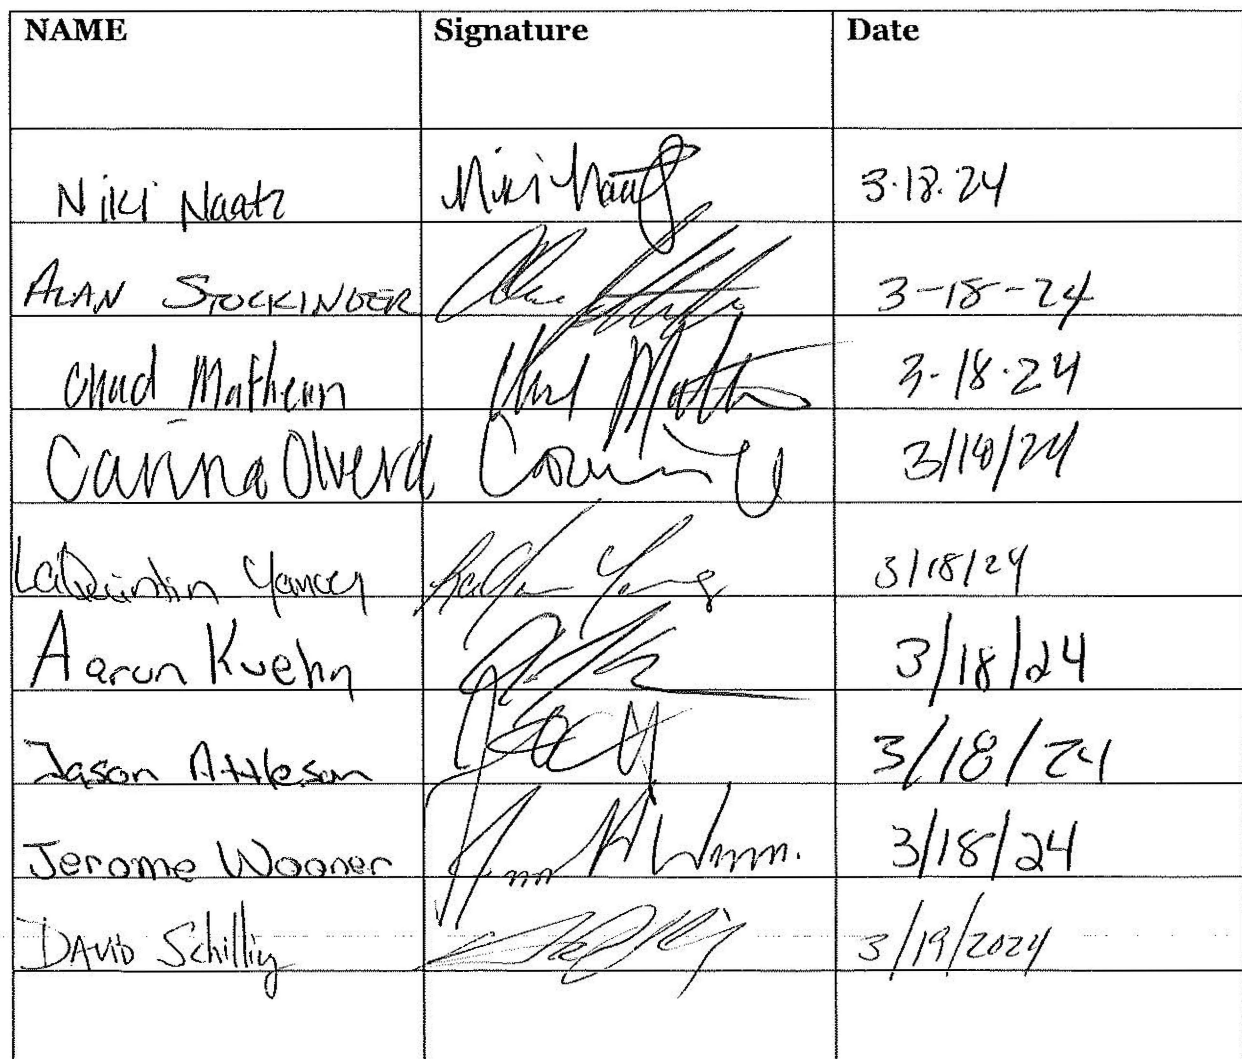 NAME Signature Date
Niki Naatz Niki Naatz 3.18.24
ALAN STOCKINGER 3-18-24
Chad Matheun 3-18-24
Carina Olvera 3/18/24
LaQuintin Yancey 3/18/24
Aaron Kuehn 3/18/24
Jason Attleson 3/18/24
Jerome Wagner 3/18/24
DAVID Schillig 3/19/2024